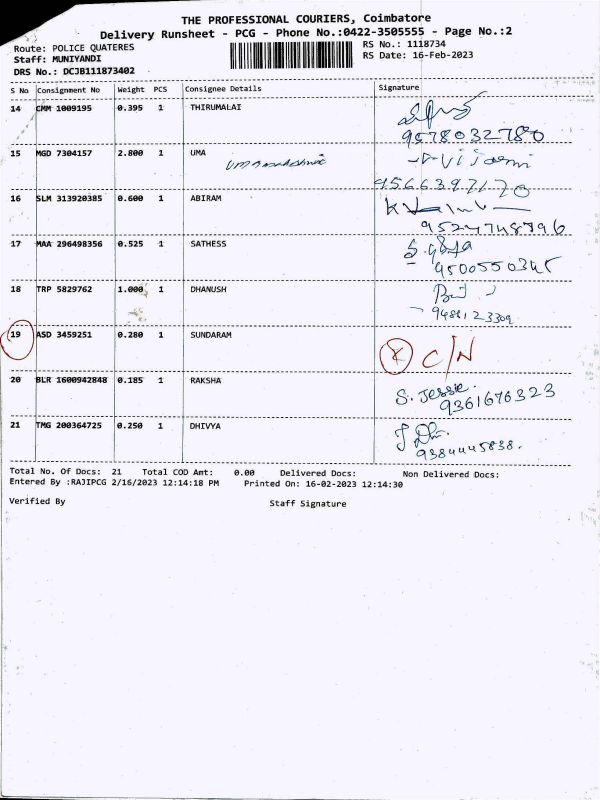 THE PROFESSIONAL COURIERS, Coimbatore
Delivery Runsheet - PCG - Phone No.:0422-3505555 - Page No.:2
Route: POLICE QUATERES RS No.: 1118734
Staff: MUNIYANDI RS Date: 16-Feb-2023
DRS No.: DCJB111873402
S No Consignment No Weight PCS Consignee Details Signature
14 CMM 1009195 0.395 1 THIRUMALAI
9578032780
15 MGD 7304157 2.800 1 UMA
9566397170
16 SLM 313920385 0.600 1 ABIRAM
9524748796
17 MAA 296498356 0.525 1 SATHESS
9500550345
18 TRP 5829762 1.000 1 DHANUSH
19 ASD 3459251 0.280 1 SUNDARAM C/N
20 BLR 1600942848 0.185 1 RAKSHA S. Jessie.
9361676323
21 TMG 200364725 0.250 1 DHIVYA
9384445838.
Total No. Of Docs: 21 Total COD Amt: 0.00 Delivered Docs: Non Delivered Docs:
Entered By :RAJIPCG 2/16/2023 12:14:18 PM Printed On: 16-02-2023 12:14:30
Verified By Staff Signature